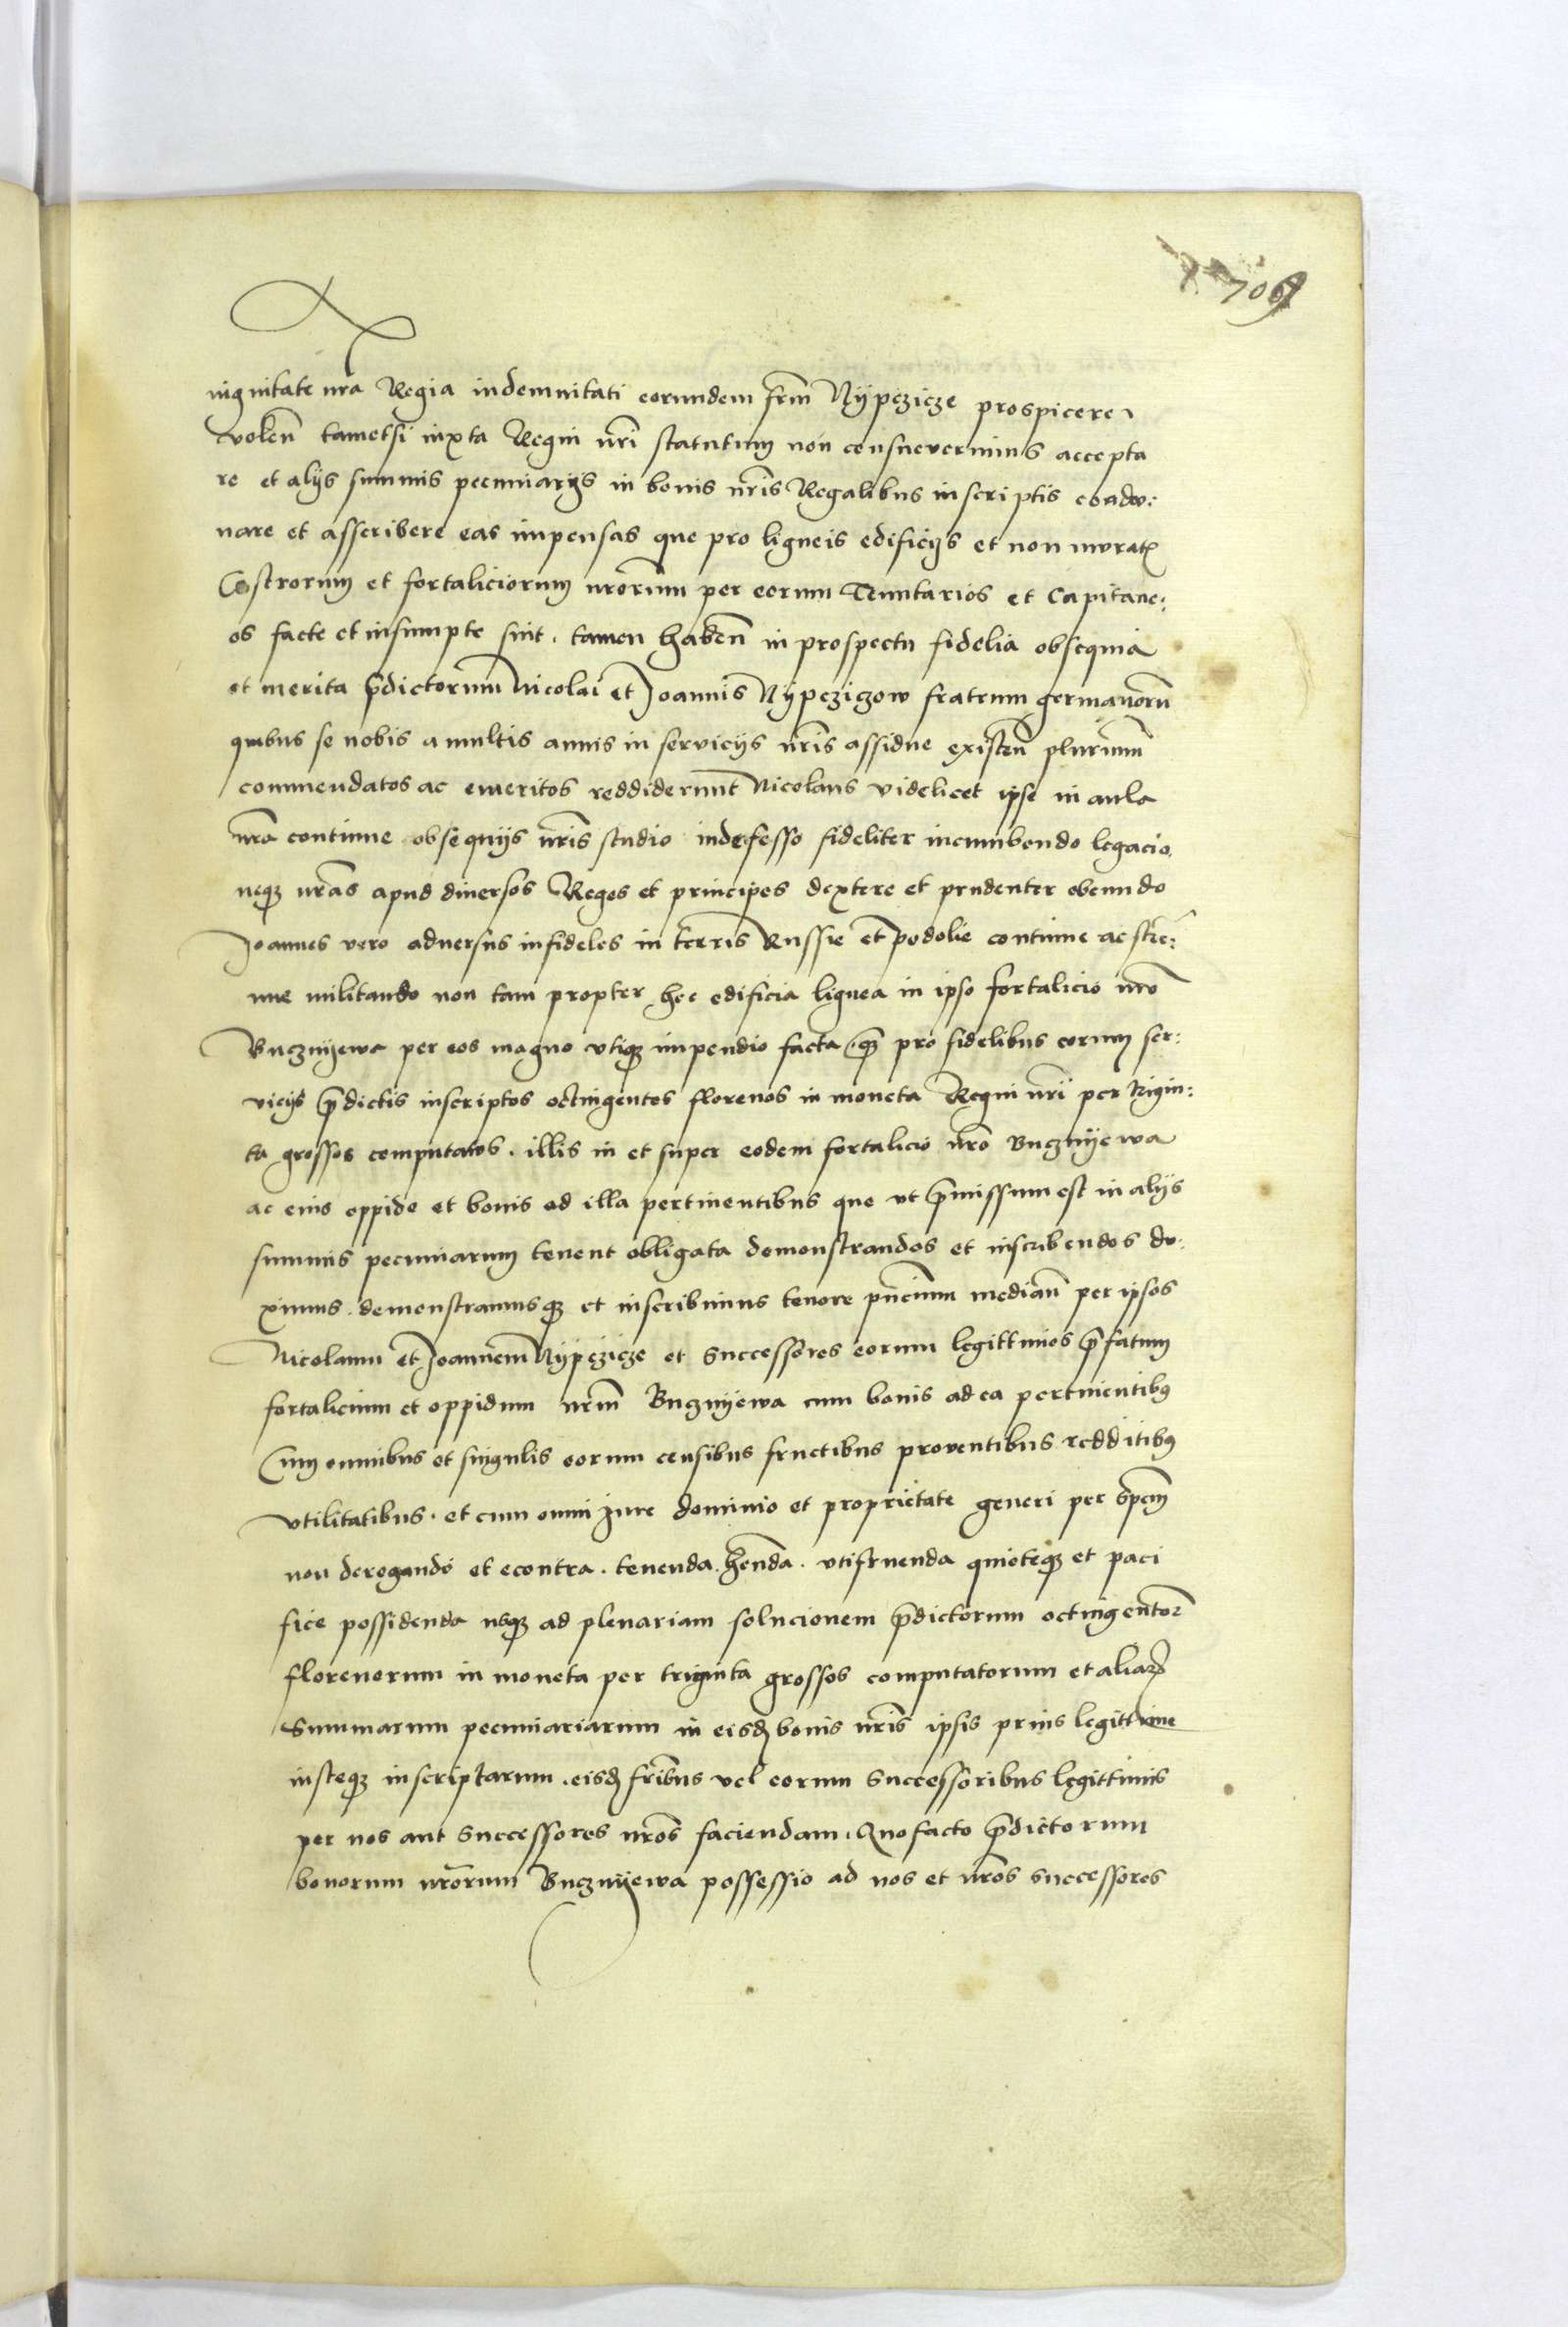 706
nignitate nra Regia indemnitati eorundem frm Nijpczicze prospicere
volen tametsi iuxta Regni nri statutum non consueverimus accepta
re et alijs summis pecuniarijs in bonis nris Regalibus inscriptis coadu:
nare et asscribere eas impensas que pro ligneis edificijs et non murat
Castrorum et fortaliciorum nrorum per eorum Tenutarios et Capitane:
os facte et insumpte sint. tamen haben in prospectu fidelia obsequia
et merita pdictorum Nicolai et Joannis Nijpcziczow fratrum germanoru
quibus se nobis a multis annis in servicijs nris assidue existen plurimum
commendatos ac emeritos reddiderunt Nicolaus videlicet ipse in aula
nra continue obsequijs nris studio indefesso fideliter incumbendo legacio
nesq nras apud diversos Reges et principes dextere et prudenter obeundo
Joannes vero adversus infideles in terris Russie et podolie continue ac stre:
nue militando non tam propter hec edificia lignea in ipso fortalicio nro
Bucznijewa per eos magno utiq impendio facta. q pro fidelibus eorum ser:
vicijs pdictis inscriptos octingentos florenos in moneta Regni nri per trigin:
ta grossos computatos. illis in et super eodem fortalicio nro Bucznijewa
ac eius oppido et bonis ad illa pertinentibus que ut pmissum est in alijs
summis pecuniarum tenent obligata demonstrandos et inscribendos du:
ximus. demonstramusq et inscribimus tenore pncium median per ipsos
Nicolaum et Joannem Nijpczicze et Successores eorum legittimos pfatum
fortalicium et oppidum nrm Bucznijewa cum bonis ad ea pertinentibus
Cum omnibus et singulis eorum censibus fructibus proventibus redditibus
utilitatibus. et cum omni Jure dominio et proprietate generi per spem
non derogando et econtra. tenenda. henda. utifruenda quieteq et paci
fice possidenda usq ad plenariam solucionem pdictorum octingentor
florenorum in moneta per triginta grossos computatorum et aliar
Summarum pecuniariarum in eisd bonis nris ipsis prius legittime
iusteq inscriptarum. eisd fribus vel eorum Successoribus legittimis
per nos aut Successores nros faciendam. Quo facto pdictorum
bonorum nrorum Buczniyewa possessio ad nos et nros successores